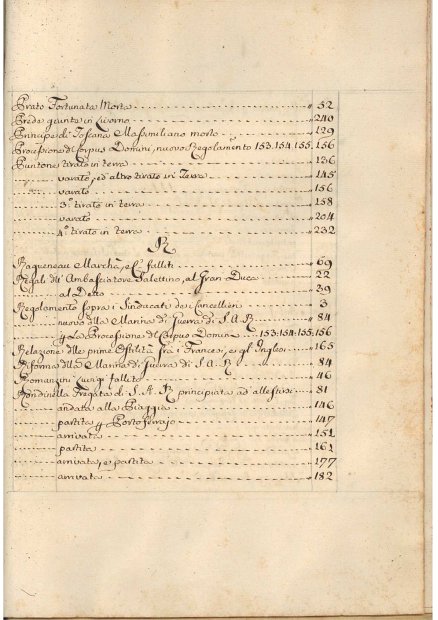 Prato Fortunata Morta 52
Preda giunta in Livorno 240
Principe di Toscana Massimiliano morto 129
Processione di Corpus Domini, nuovo Regolamento 153.154.155.156
Puntone tirato in terra 136
varato, ed altro tirato in Terra 145
varato 156
3º tirato in terra 158
varato 204
4º tirato in terra 232
R
Ragueneau Marchà, e C. falliti 69
Regali dll' Ambasciatore Salettino, al Gran Duca 22
al Detto 39
Regolamento sopra i Sinducati de' Cancellieri 3
nuovo alla Marina di Guerra di S.A.R. 84
La Processione di Corpus Domini 153.154.155.156
Relazione dlle prime Ostilità frà i Francesi, e gl' Inglesi 165
Riforma dlla Marina di Guerra di S.A.R. 84
Luigi fallito 46
Rondinella Fregata di S.A.R. principiata ad allestirsi 81
andata alla Piaggia 146
partita Porto ferrajo 147
arrivata 151
partita 161
arrivata, e partita 177
arrivata 182